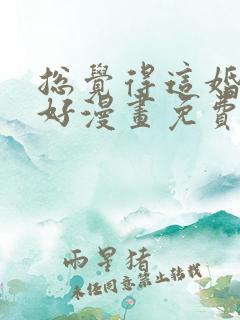 总觉得这婚
好漫画免费
雨星猪
未经同意禁止转载